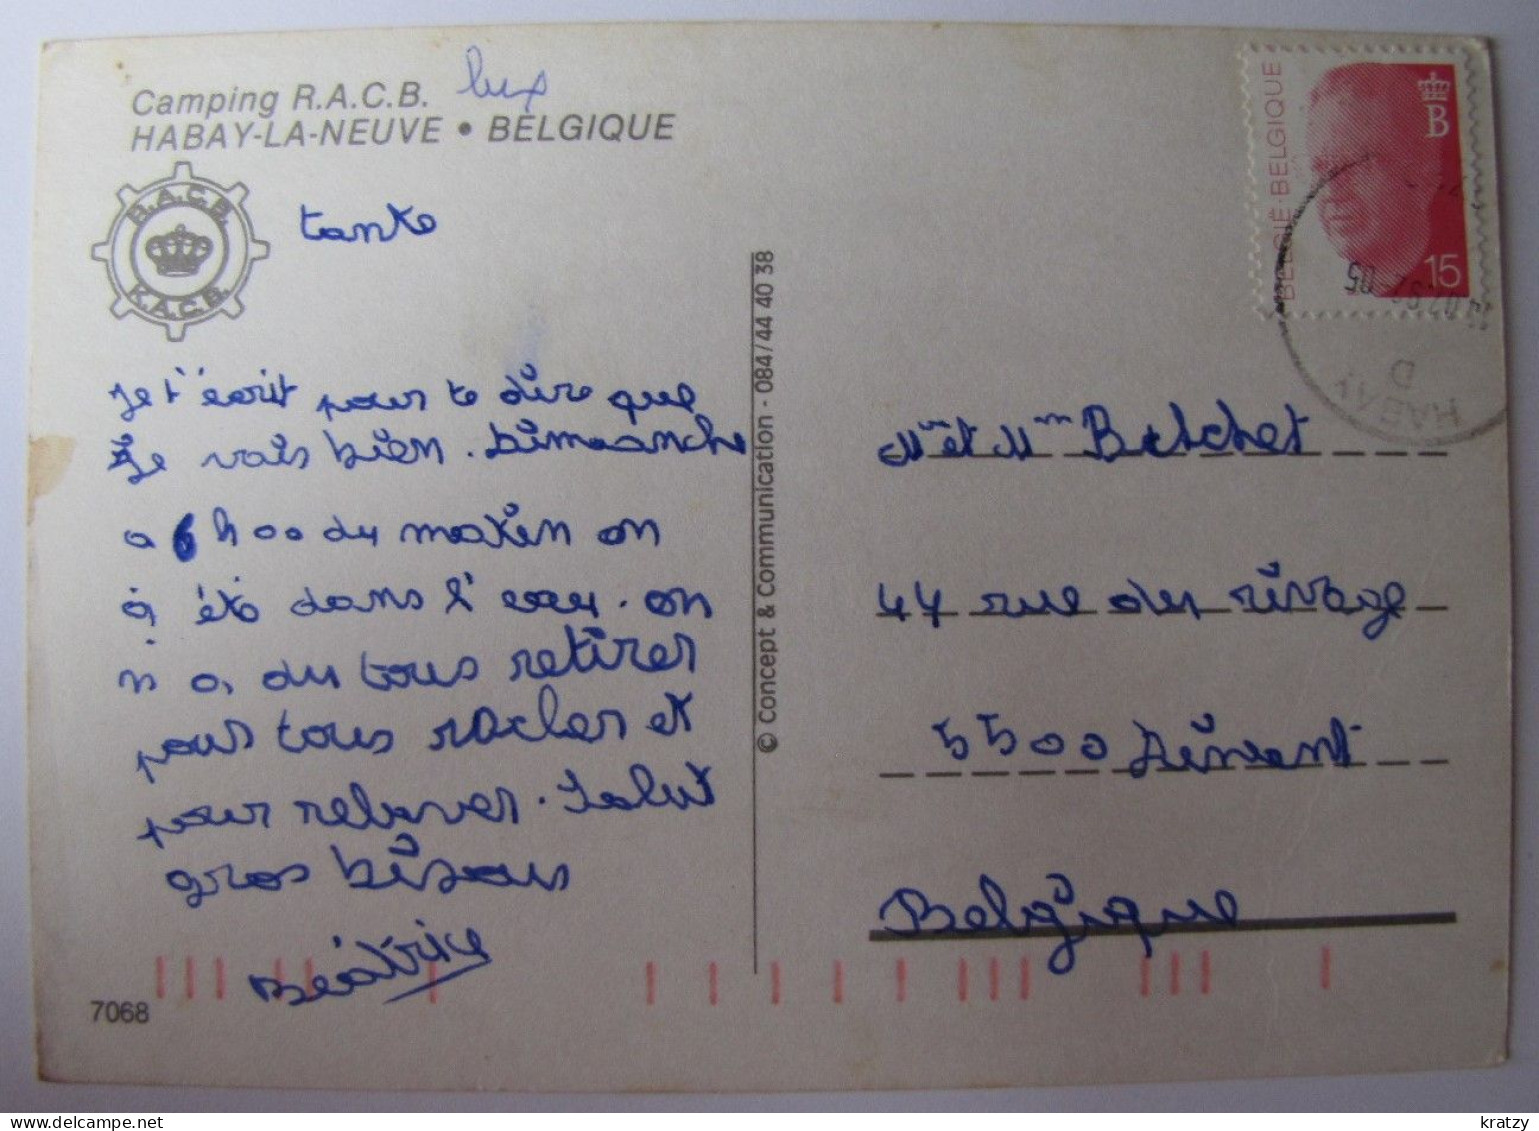 Camping R.A.C.B. lux
HABAY-LA-NEUVE • BELGIQUE
R.A.C.B.
K.A.C.B.
tante
Je t'écrit pour te dire que
je vais bien. Dimaanche
a 6h00 du matin on
à été dans l'eau. on
n'a du tous retirer
pour tous racler et
pour relaver. Salut
gros bisous
Béatrice
7068
© Concept & Communication - 084/44 40 38
BELGIË-BELGIQUE
B
15
HABAY
D
Mr et Mm Betchet
44 rue du rivage
5500 Dinant
Belgique
kratzy
delcampe.net